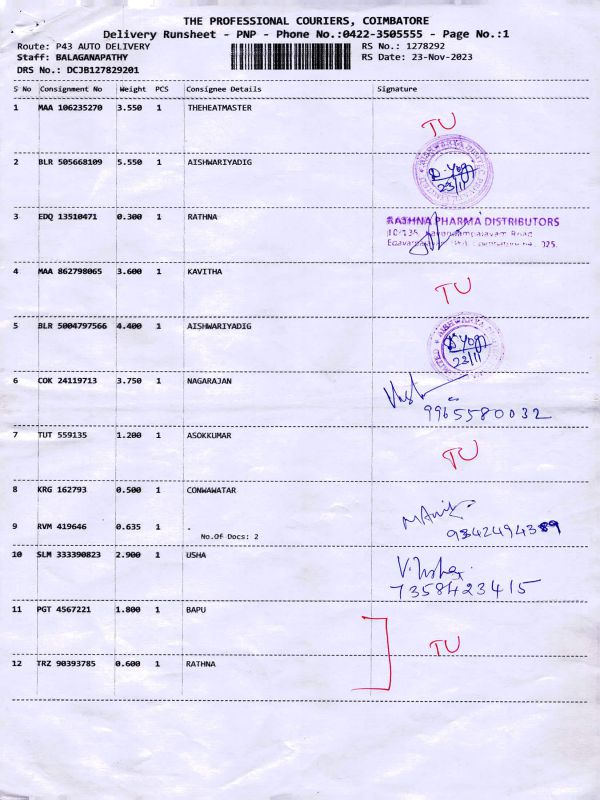 THE PROFESSIONAL COURIERS, COIMBATORE
Delivery Runsheet - PNP - Phone No.:0422-3505555 - Page No.:1
Route: P43 AUTO DELIVERY RS No.: 1278292
Staff: BALAGANAPATHY RS Date: 23-Nov-2023
DRS No.: DCJB127829201
S No Consignment No Weight PCS Consignee Details Signature
1 MAA 106235270 3.550 1 THEHEATMASTER
TU
2 BLR 505668109 5.550 1 AISHWARIYADIG
D. Yogi
23/11
3 EDQ 13510471 0.300 1 RATHNA RATHNA PHARMA DISTRIBUTORS
4 MAA 862798065 3.600 1 KAVITHA
TU
5 BLR 5004797566 4.400 1 AISHWARIYADIG
D. Yogi
23/11
6 COK 24119713 3.750 1 NAGARAJAN
9965580032
7 TUT 559135 1.200 1 ASOKKUMAR
TU
8 KRG 162793 0.500 1 CONWAWATAR
9 RVM 419646 0.635 1 .
No.Of Docs: 2
10 SLM 333390823 2.900 1 USHA
V. Usha
7358423415
11 PGT 4567221 1.800 1 BAPU
TU
12 TRZ 90393785 0.600 1 RATHNA